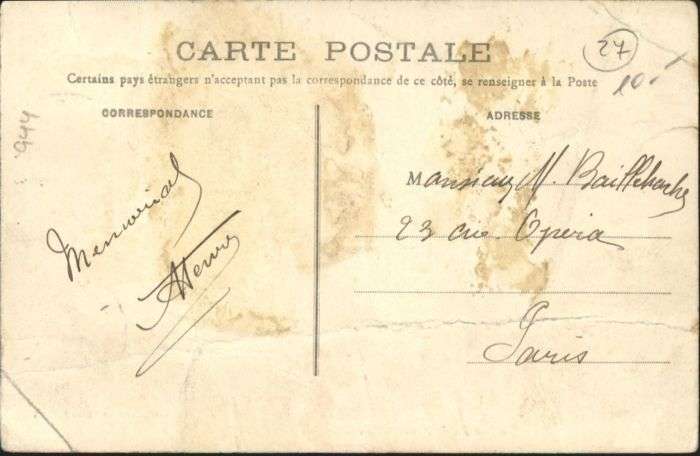 27
CARTE POSTALE
Certains pays étrangers n'acceptant pas la correspondance de ce côté, se renseigner à la Poste
10
944
CORRESPONDANCE
ADRESSE
Monsieur M.
23 rue Opera
Paris